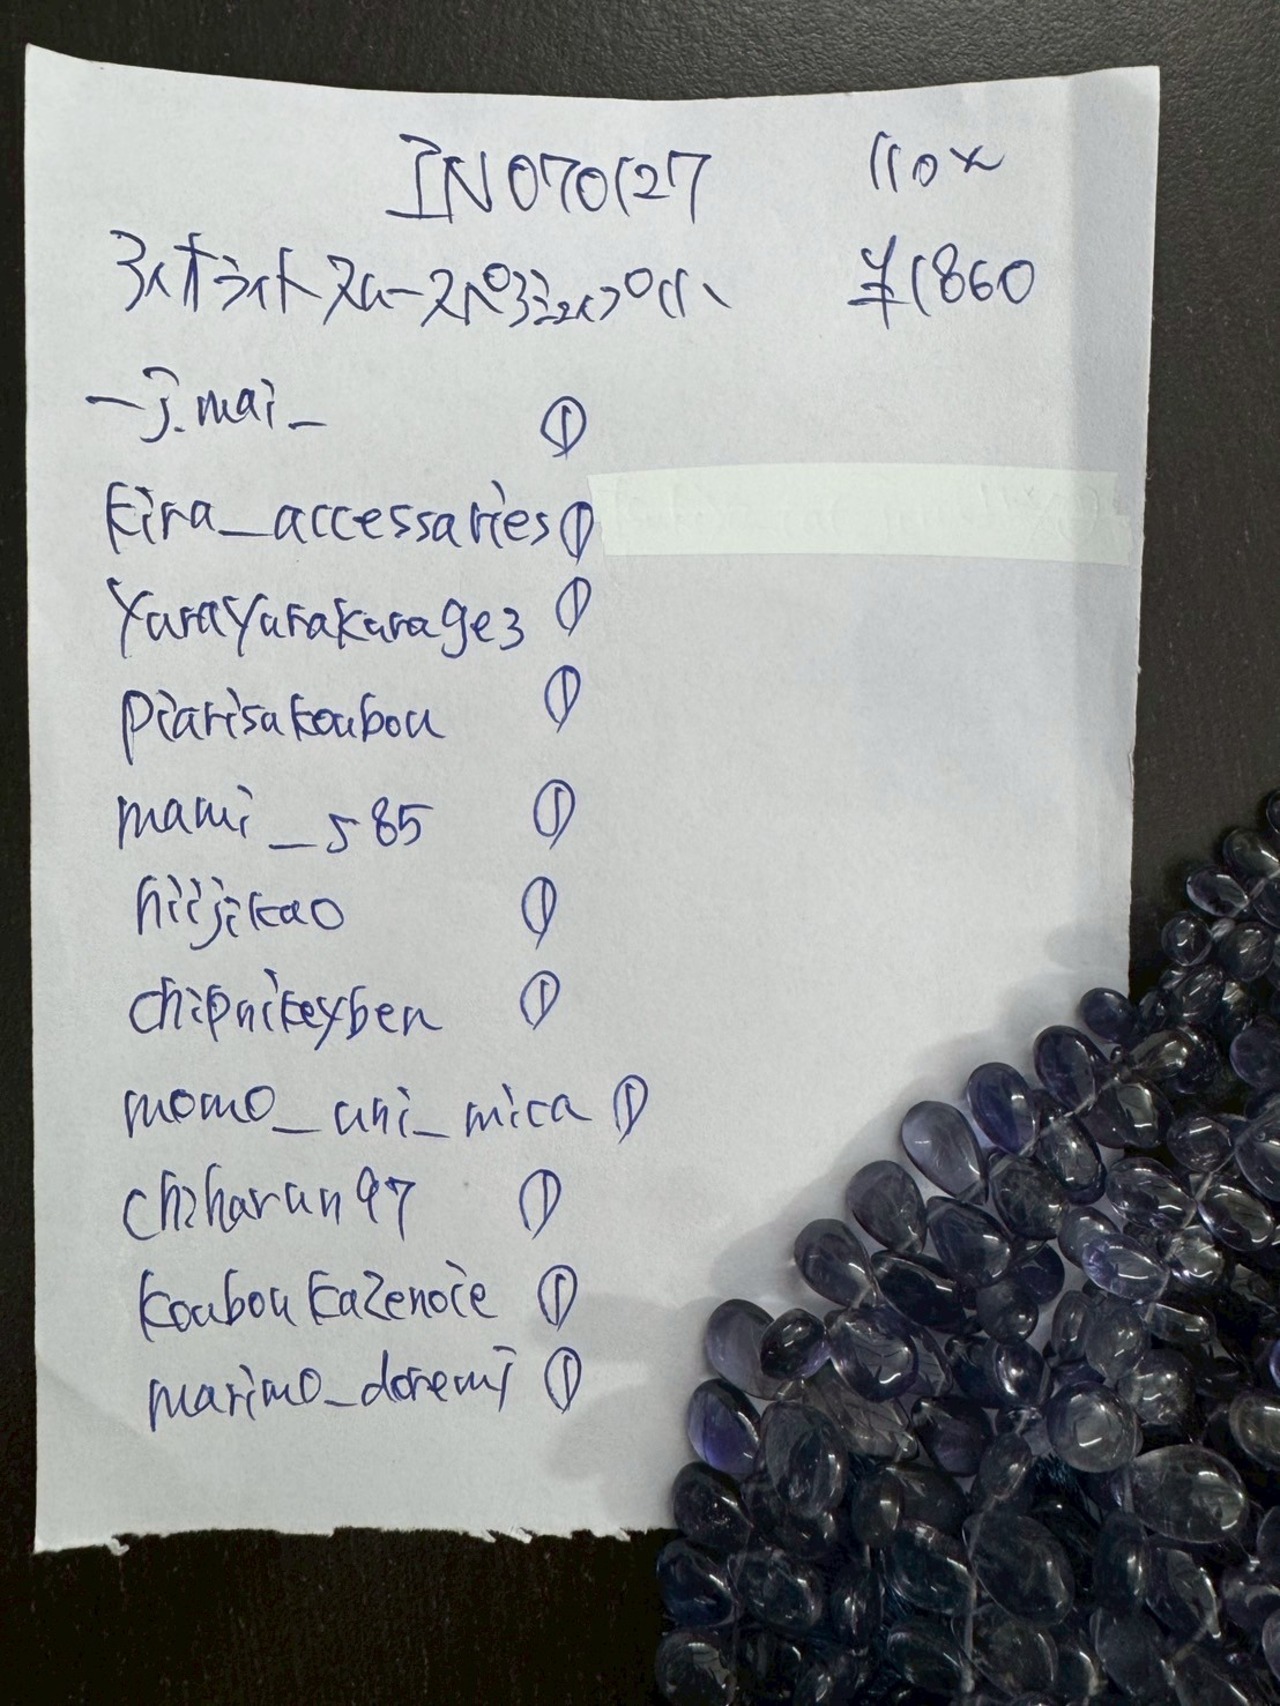 IN070127 110×
アイオライトスムースペアシェイプ(小) ¥1860
_j.mai_ ①
kira_accessaries ①
yurayurakurage3 ①
piarisakoubou ①
mami_585 ①
hiijikao ①
chipnikeyben ①
momo_uni_mica ①
chiharun97 ①
koubou kazenoie ①
marimo_doremi ①